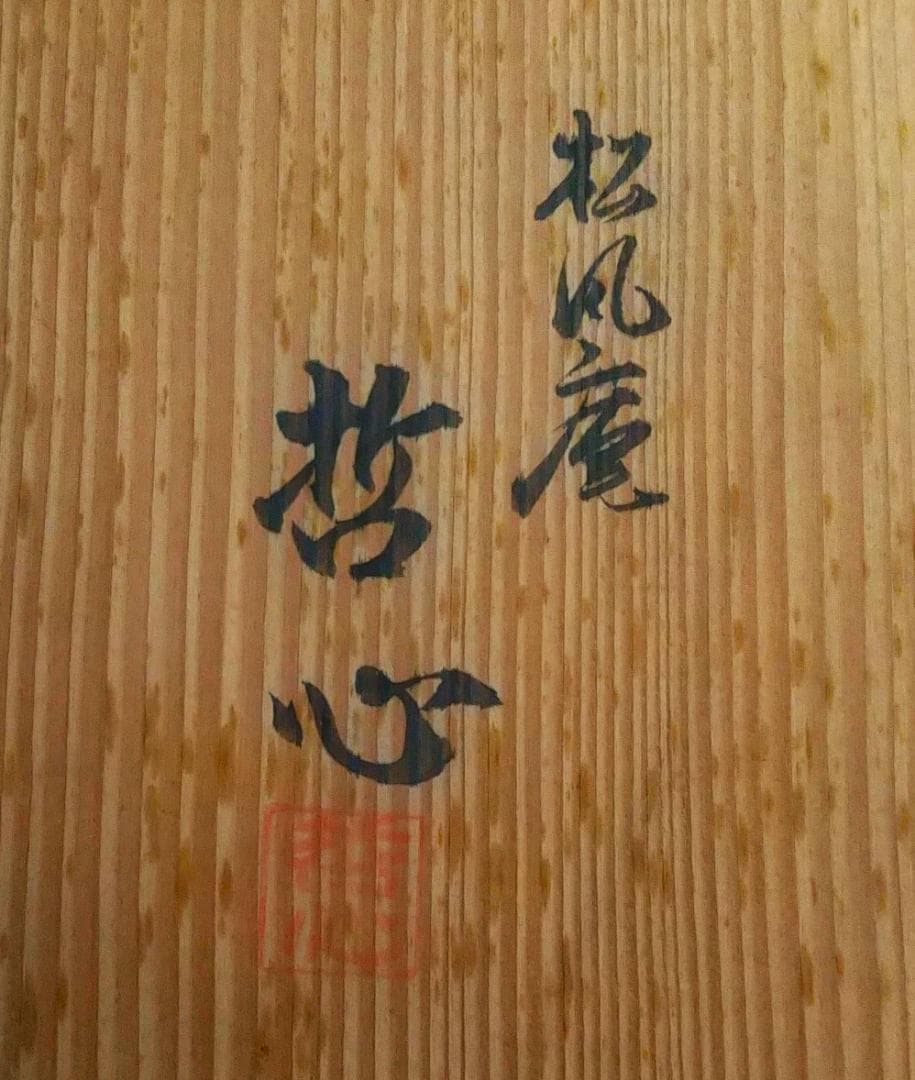 松風庵
哲心